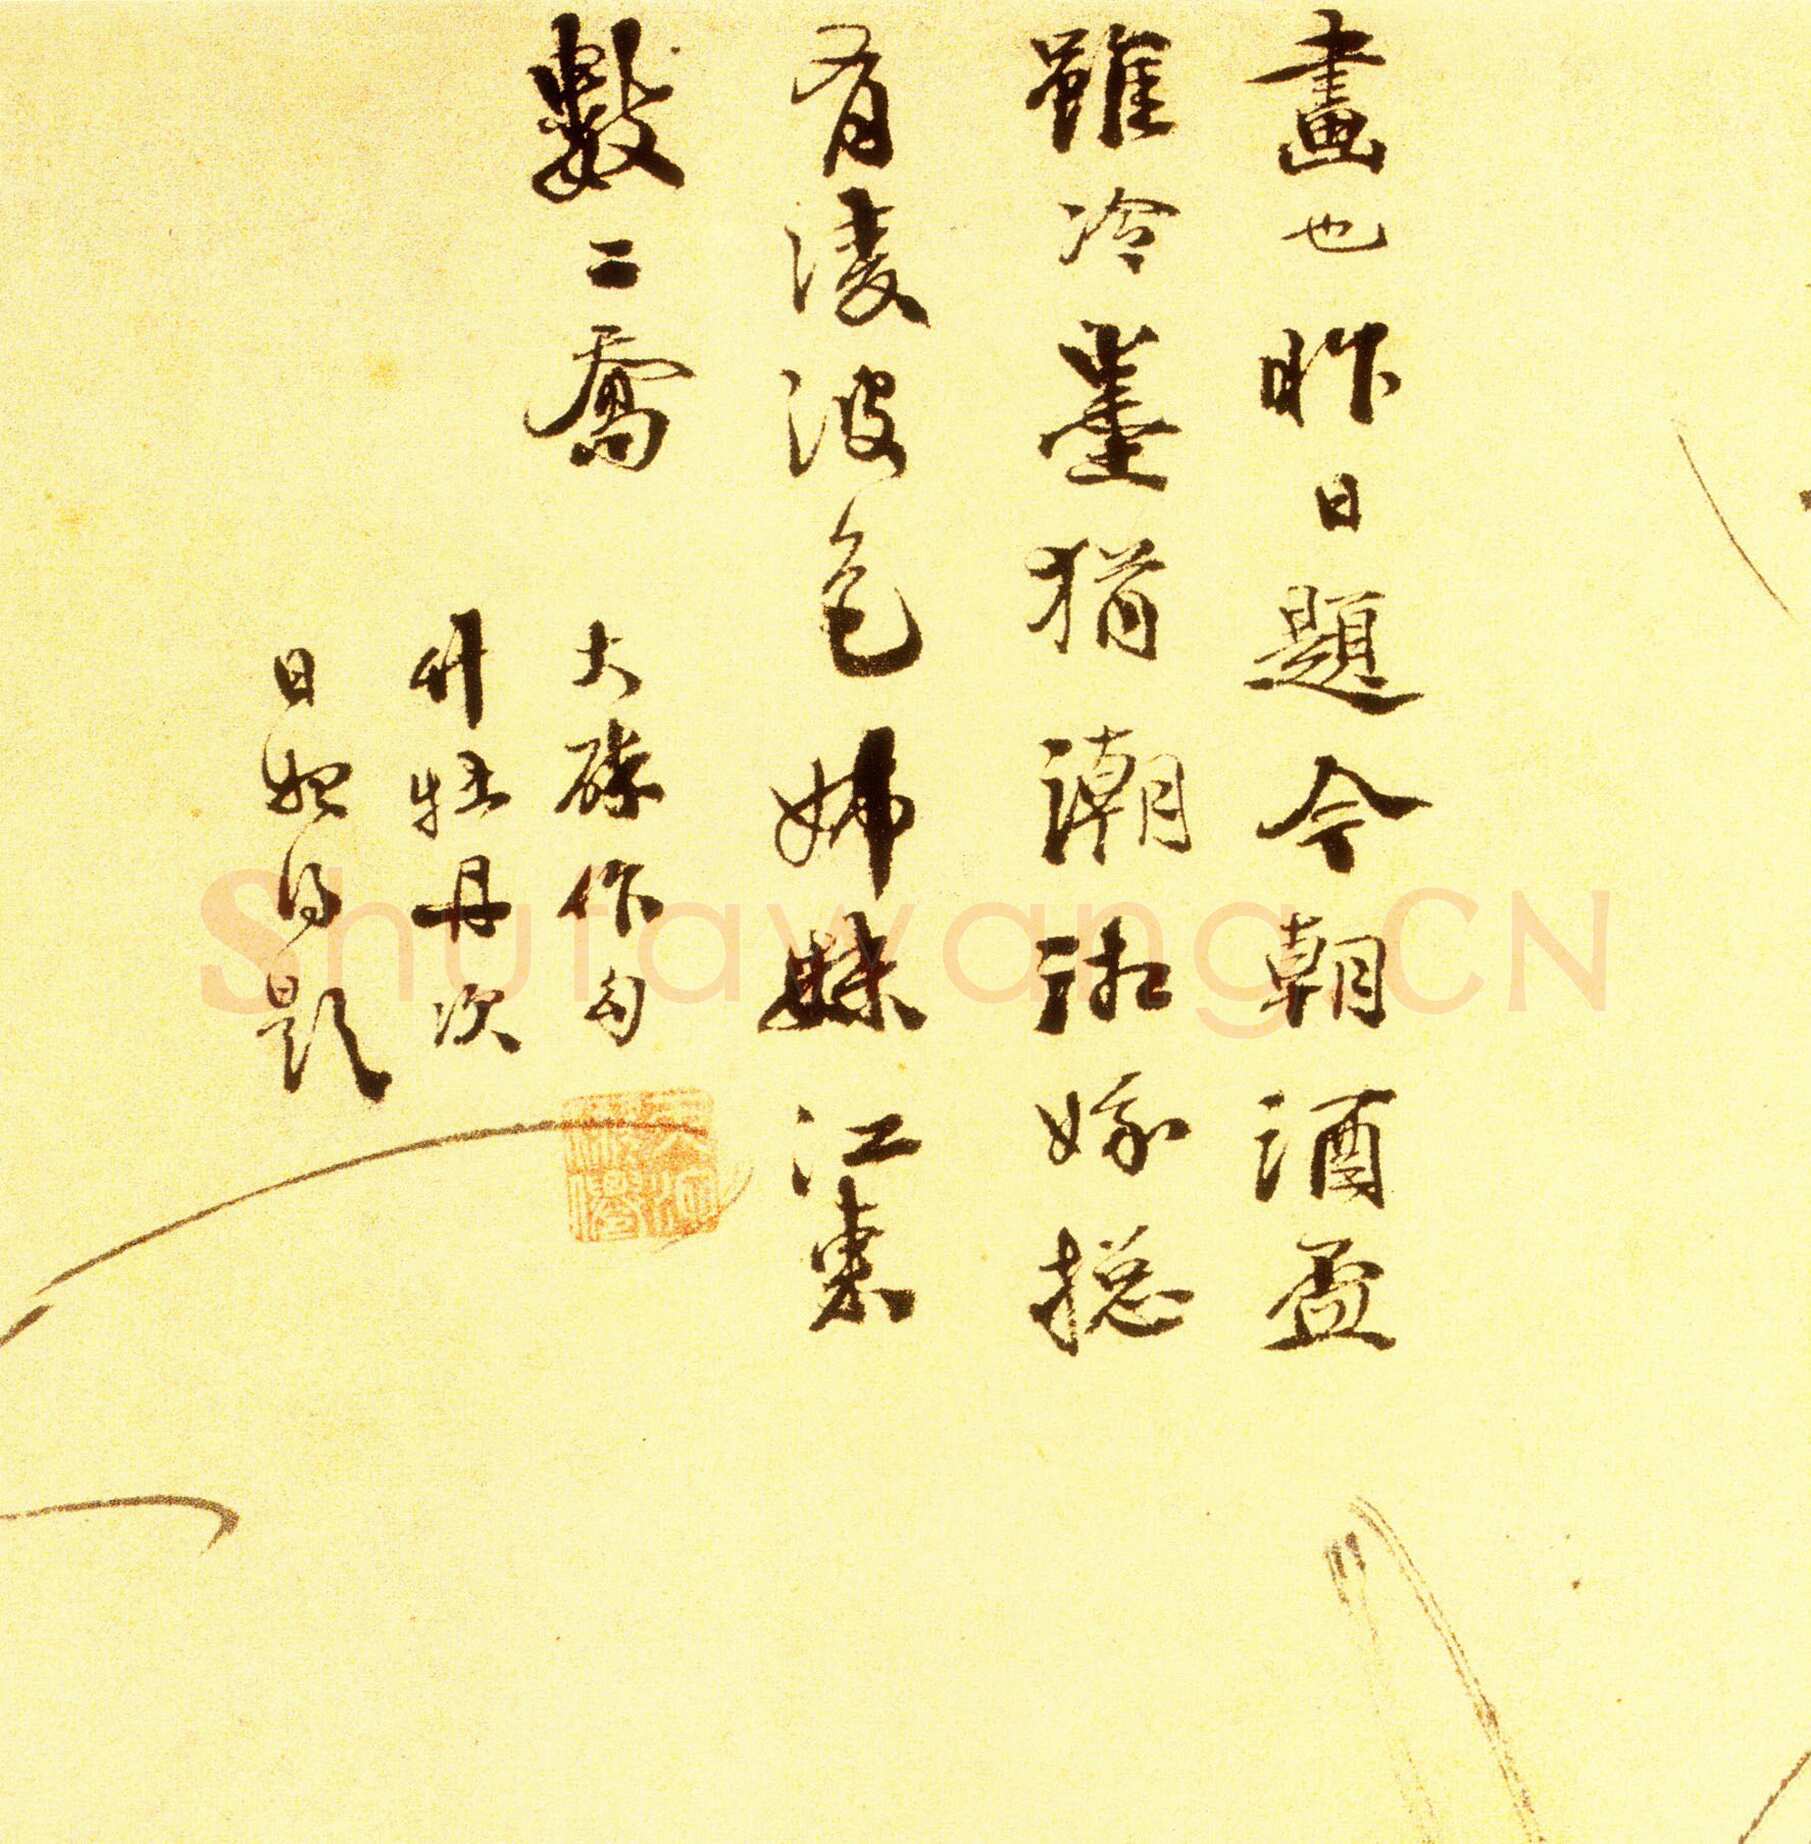 畫也昨日題今朝酒盃
雖冷墨猶潮湘娥捴
有淩波色姊妹江東
數二喬
大滌作勾
竹牡丹次
日想得題
Shufawang.CN